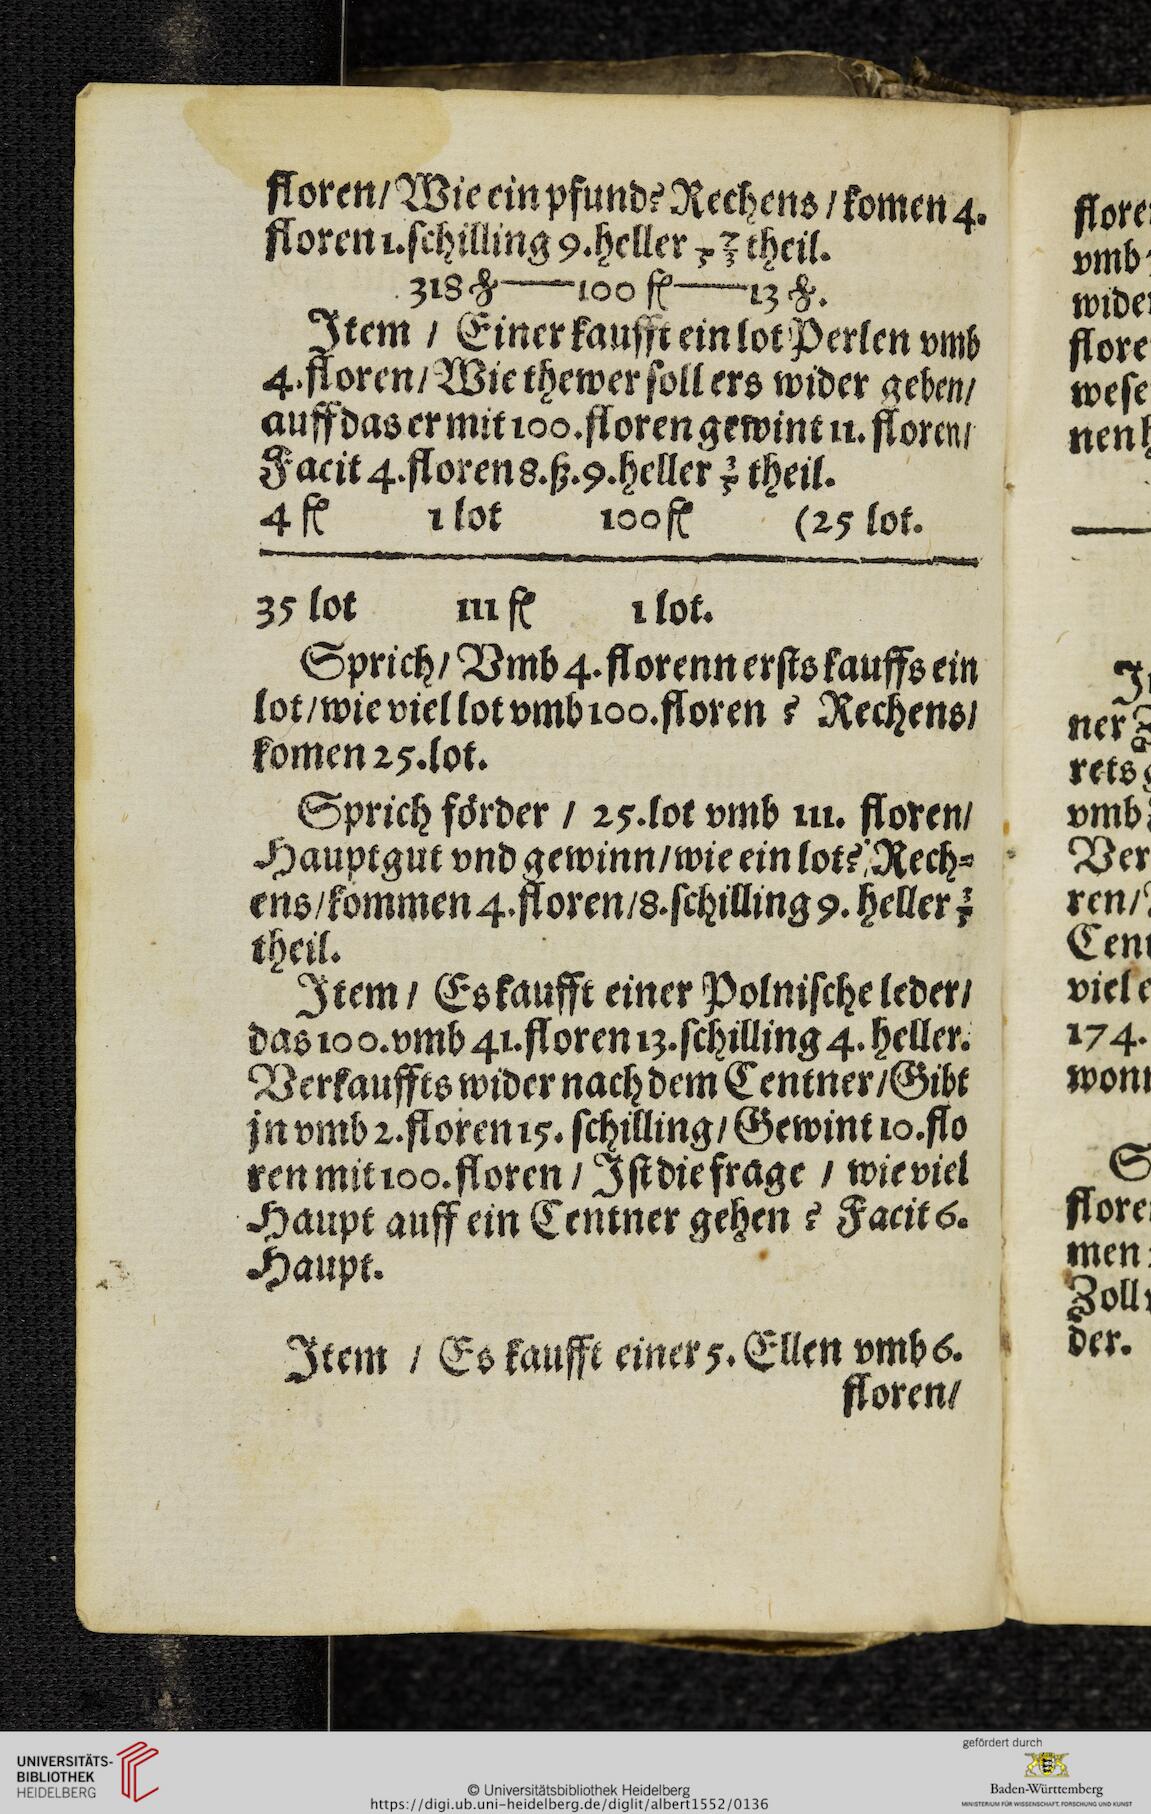 floren/ Wie ein pfund? Rechens / komen 4.
floren 1. schilling 9. heller theil.
318 ℔ 100 fl 13 ℔.
Item / Einer kaufft ein lot Perlen vmb
4. floren/ Wie thewer soll ers wider geben/
auff das er mit 100. floren gewint 11. floren/
Facit 4. floren 8. ß. 9. heller 3/5 theil.
4 fl 1 lot 100 fl (25 lot.
35 lot 111 fl 1 lot.
Sprich/ Vmb 4. florenn ersts kauffs ein
lot/ wie viel lot vmb 100. floren ? Rechens/
komen 25. lot.
Sprich förder / 25. lot vmb 111. floren/
Hauptgut vnd gewinn/ wie ein lot? Rech=
ens/ kommen 4. floren/ 8. schilling 9. heller 3/5
theil.
Item / Es kaufft einer Polnische leder/
das 100. vmb 41. floren 13. schilling 4. heller.
Verkauffts wider nach dem Centner/ Gibt
jn vmb 2. floren 15. schilling/ Gewint 10. flo
ren mit 100. floren / Ist die frage / wie viel
Haupt auff ein Centner gehen ? Facit 6.
Haupt.
Item / Es kaufft einer 5. Ellen vmb 6.
floren/
flore
vmb
wide
flore
wese
nen
ner
rets
vmb
Ver
ren/
Cent
viel e
174.
wonn
S
flore
men
Zoll
der.
UNIVERSITÄTS-
BIBLIOTHEK
HEIDELBERG
© Universitätsbibliothek Heidelberg
https://digi.ub.uni-heidelberg.de/diglit/albert1552/0136
gefördert durch
Baden-Württemberg
MINISTERIUM FÜR WISSENSCHAFT, FORSCHUNG UND KUNST